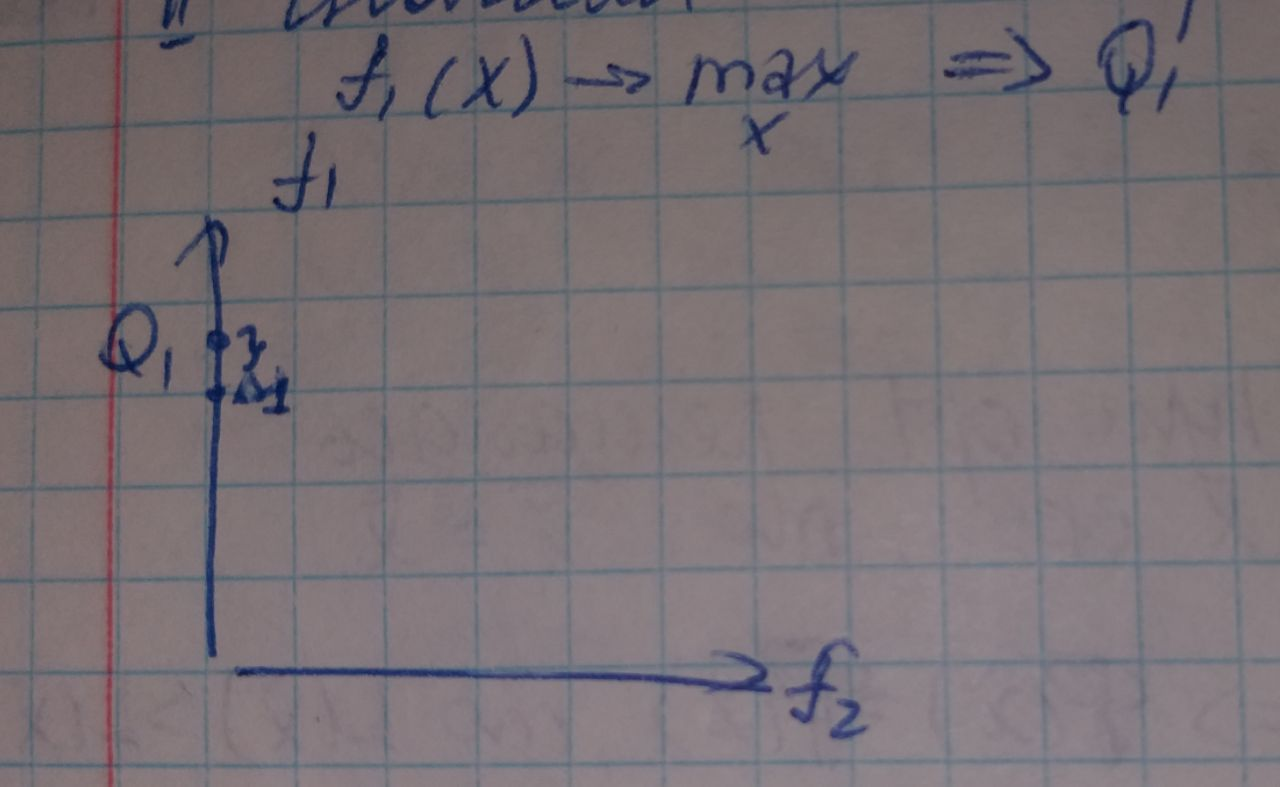 f₁(x) → max ⇒ Q₁'
x
f₁
Q₁
Δ1
f₂